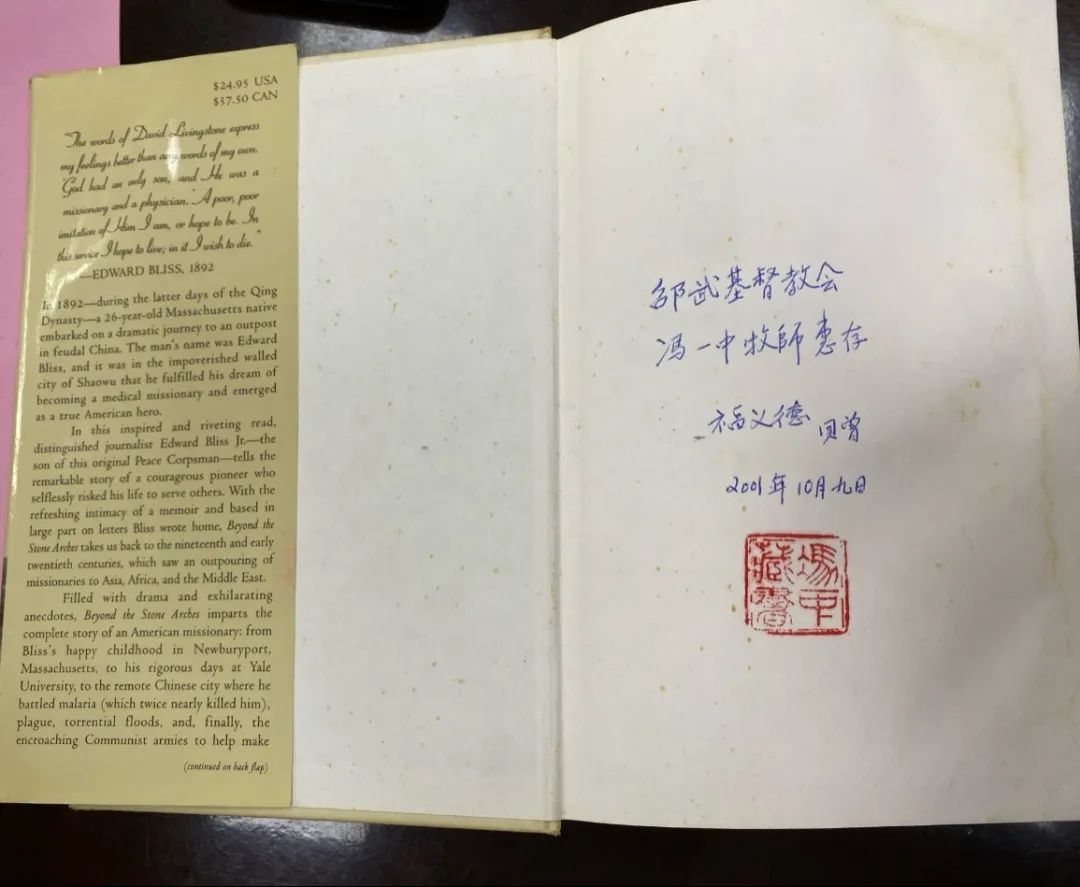 $24.95 USA
$37.50 CAN
"The words of David Livingstone express
my feelings better than any words of my own.
'God had an only son, and He was a
missionary and a physician.' A poor, poor
imitation of Him I am, or hope to be. In
this service I hope to live; in it I wish to die."
—EDWARD BLISS, 1892
In 1892—during the latter days of the Qing
Dynasty—a 26-year-old Massachusetts native
embarked on a dramatic journey to an outpost
in feudal China. The man's name was Edward
Bliss, and it was in the impoverished walled
city of Shaowu that he fulfilled his dream of
becoming a medical missionary and emerged
as a true American hero.
In this inspired and riveting read,
distinguished journalist Edward Bliss Jr.—the
son of this original Peace Corpsman—tells the
remarkable story of a courageous pioneer who
selflessly risked his life to serve others. With the
refreshing intimacy of a memoir and based in
large part on letters Bliss wrote home, Beyond the
Stone Arches takes us back to the nineteenth and early
twentieth centuries, which saw an outpouring of
missionaries to Asia, Africa, and the Middle East.
Filled with drama and exhilarating
anecdotes, Beyond the Stone Arches imparts the
complete story of an American missionary: from
Bliss's happy childhood in Newburyport,
Massachusetts, to his rigorous days at Yale
University, to the remote Chinese city where he
battled malaria (which twice nearly killed him),
plague, torrential floods, and, finally, the
encroaching Communist armies to help make
(continued on back flap)
邵武基督教会
冯一中牧師惠存
福义德 赠
2001年10月九日
馮一中
藏書